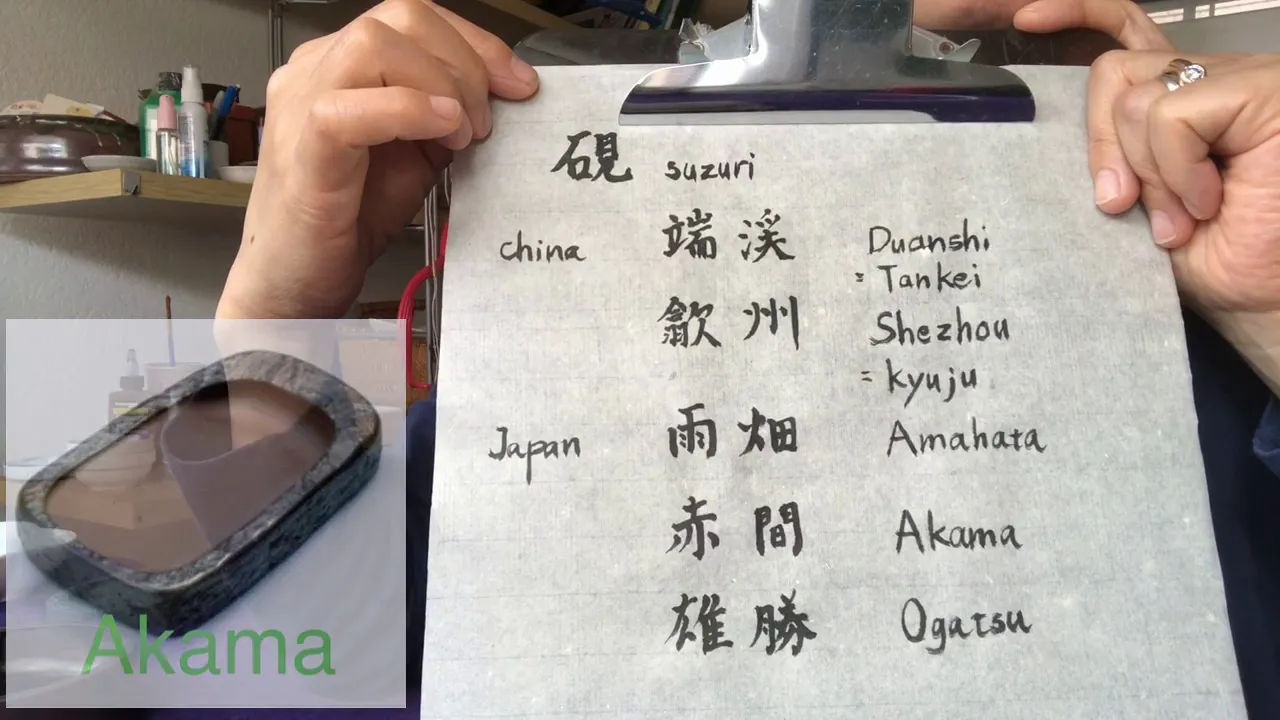 硯 suzuri
China 端溪 Duanshi
= Tankei
歙州 Shezhou
= kyuju
Japan 雨畑 Amahata
赤間 Akama
雄勝 Ogatsu
Akama